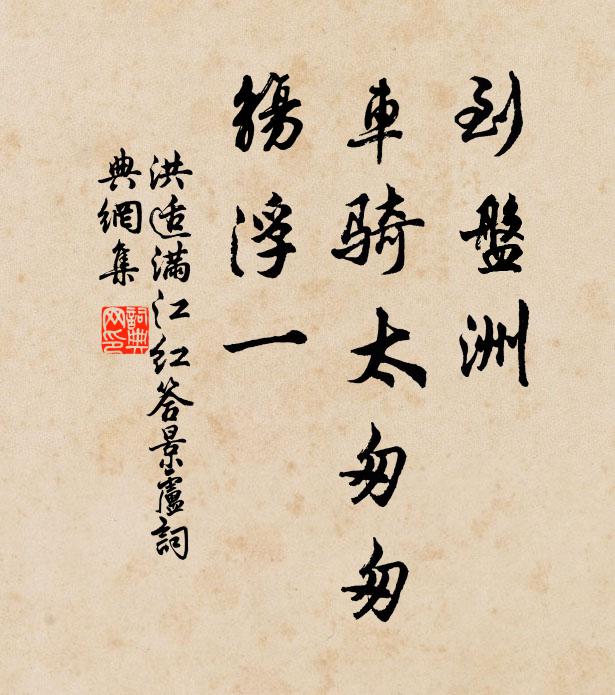 到盤洲
車騎太匆匆
觴浮一
洪适滿江紅答景廬詞
典網集
詞典
网印